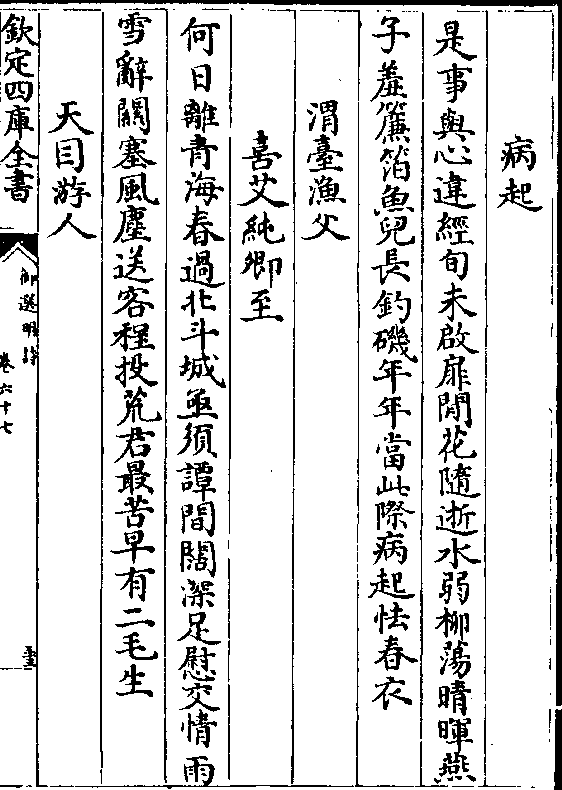 病起
是事與心違經旬未啟扉閒花隨逝水弱柳蕩晴暉燕
子羞簾箔魚兒長釣磯年年當此際病起怯春衣
渭臺漁父
喜艾純卿至
何日離青海春過北斗城亟須譚間闊深足慰交情雨
雪辭關塞風塵送客程投荒君最苦早有二毛生
天目游人
欽定四庫全書
御選明詩
卷六十七